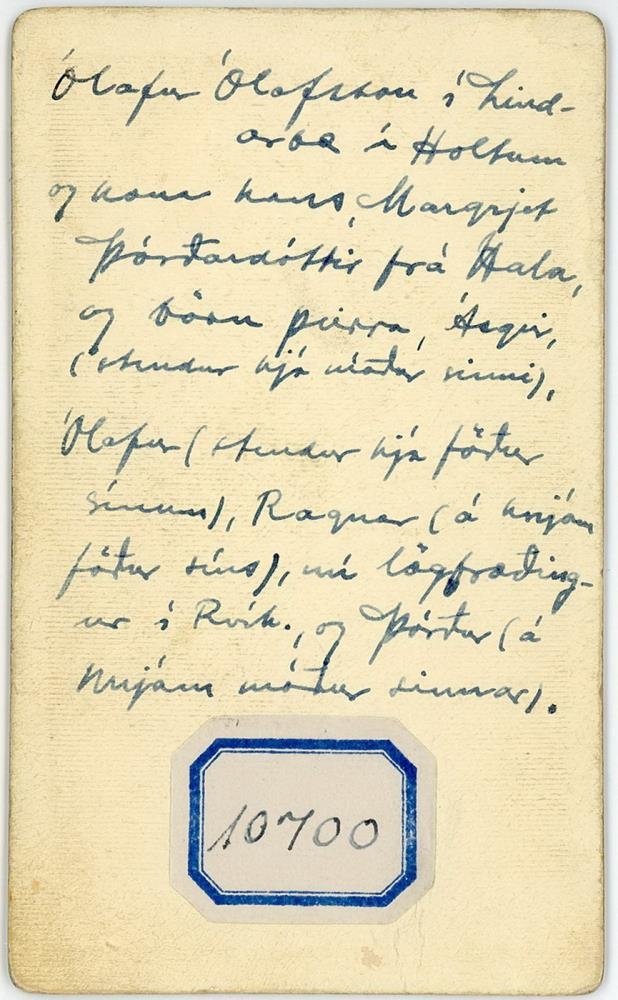 Ólafur Ólafsson í Lind-
arbæ í Holtum
og kona hans, Margrjet
Þórðardóttir frá Hala,
og börn þeirra, Ásgeir,
(stendur hjá móður sinni),
Ólafur (stendur hjá föður
sínum), Ragnar (á knjám
föður síns), nú lögfræðing-
ur í Rvík., og Þórður (á
knjám móður sinnar).
10700